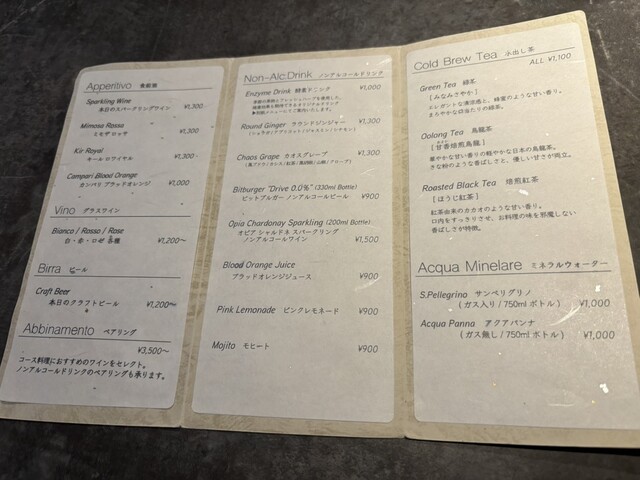 Apperitivo 食前酒
Sparkling Wine
本日のスパークリングワイン ¥1,300
Mimosa Rossa
ミモザ ロッサ ¥1,300
Kir Royal
キール ロワイヤル ¥1,300
Campari Blood Orange
カンパリ ブラッドオレンジ ¥1,000
Vino グラスワイン
Bianco / Rosso / Rose
白・赤・ロゼ 各種 ¥1,200～
Birra ビール
Craft Beer
本日のクラフトビール ¥1,200～
Abbinamento ペアリング
¥3,500～
コース料理におすすめのワインをセレクト。
ノンアルコールドリンクのペアリングも承ります。
Non-Alc.Drink ノンアルコールドリンク
Enzyme Drink 酵素ドリンク ¥1,000
▶別紙メニューにてご案内いたします。
Round Ginger ラウンドジンジャー ¥1,300
Chaos Grape カオスグレープ ¥1,300
Bitburger "Drive 0.0%" (330ml Bottle)
ビットブルガー ノンアルコールビール ¥900
Opia Chardonay Sparkling (200ml Bottle)
オピア シャルドネ スパークリング
ノンアルコールワイン ¥1,500
Blood Orange Juice
ブラッドオレンジジュース ¥900
Pink Lemonade ピンクレモネード ¥900
Mojito モヒート ¥900
Cold Brew Tea 水出し茶
ALL ¥1,100
Green Tea 緑茶
[みなみさやか]
エレガントな清涼感と、蜂蜜のような甘い香り。
まろやかな口当たりの緑茶。
Oolong Tea 烏龍茶
[甘香焙煎烏龍]
華やかな甘い香りの軽やかな日本の烏龍茶。
きな粉のような香ばしさと、優しい甘さが両立。
Roasted Black Tea 焙煎紅茶
[ほうじ紅茶]
紅茶由来のカカオのような甘い香り。
口内をすっきりさせ、お料理の味を邪魔しない
香ばしさが特徴。
Acqua Minelare ミネラルウォーター
S.Pellegrino サンペリグリノ
(ガス入り / 750ml ボトル) ¥1,000
Acqua Panna アクアパンナ
(ガス無し / 750ml ボトル) ¥1,000